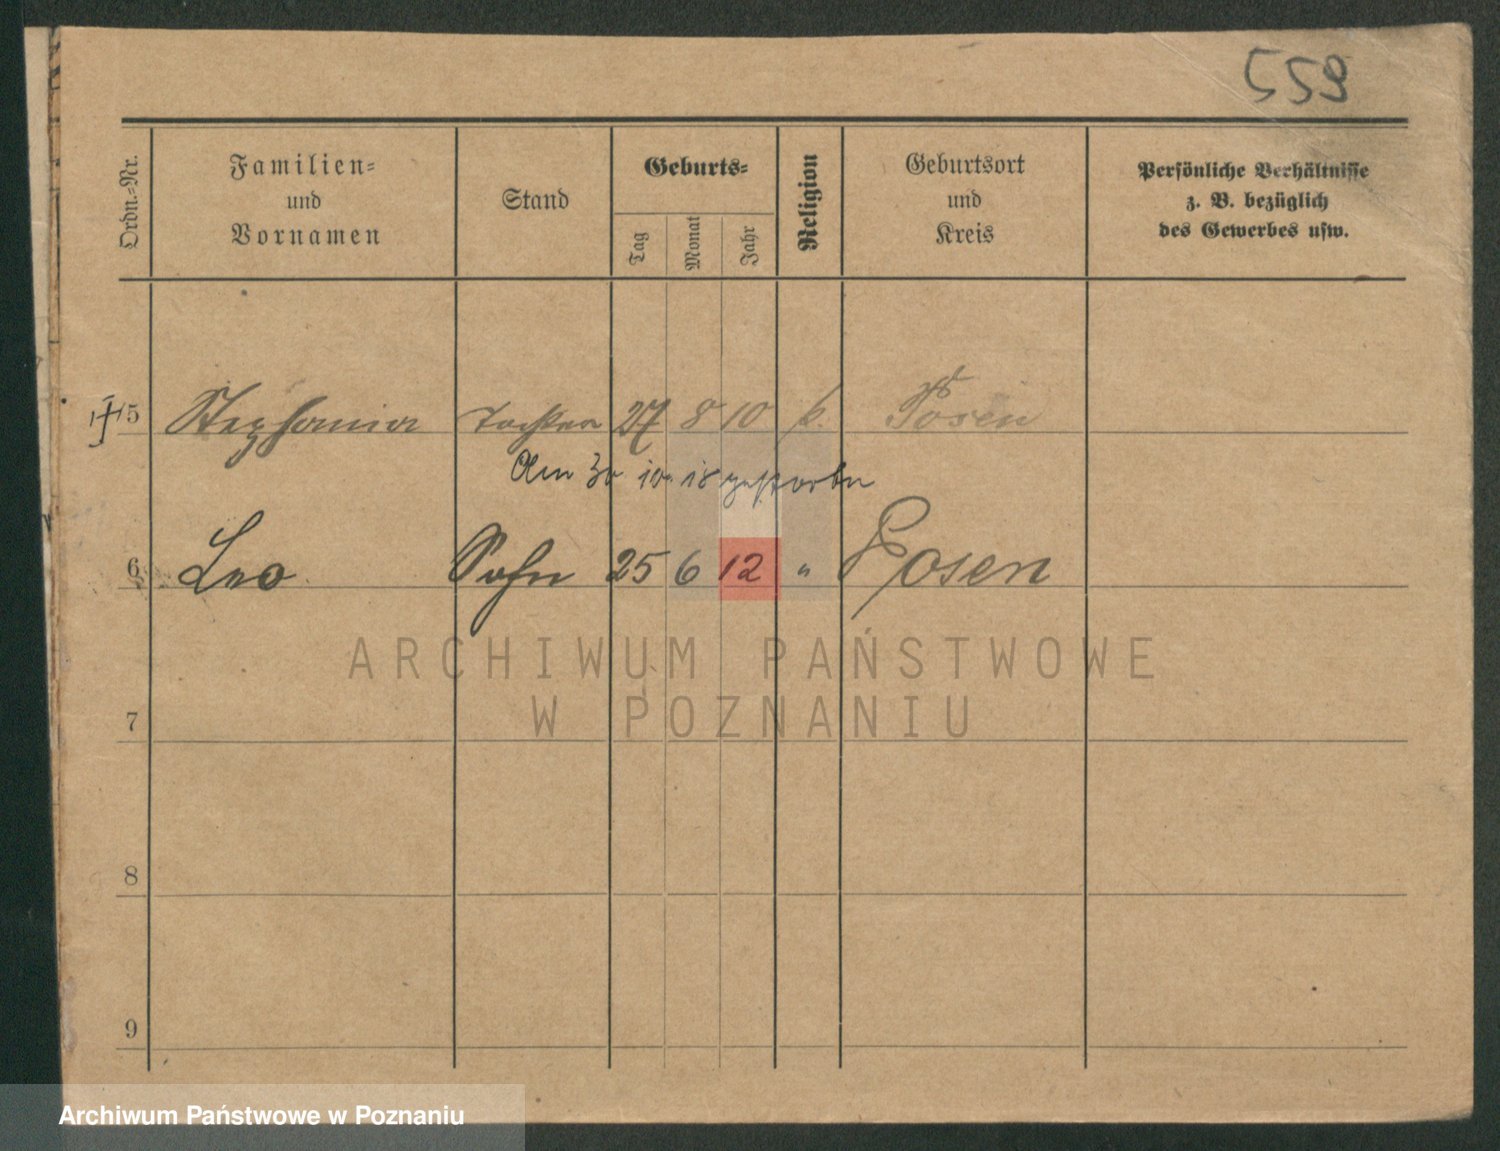 559
Ordn.-Nr.
Familien-
und
Vornamen
Stand
Geburts-
Tag
Monat
Jahr
Religion
Geburtsort
und
Kreis
Persönliche Verhältnisse
z. B. bezüglich
des Gewerbes usw.
5 Stephania Tochter 27 8 10 k. Posen
Am 30 10. 18 gestorben
6 Leo Sohn 25 6 12 " Posen
ARCHIWUM PAŃSTWOWE
W POZNANIU
7
8
9
Archiwum Państwowe w Poznaniu